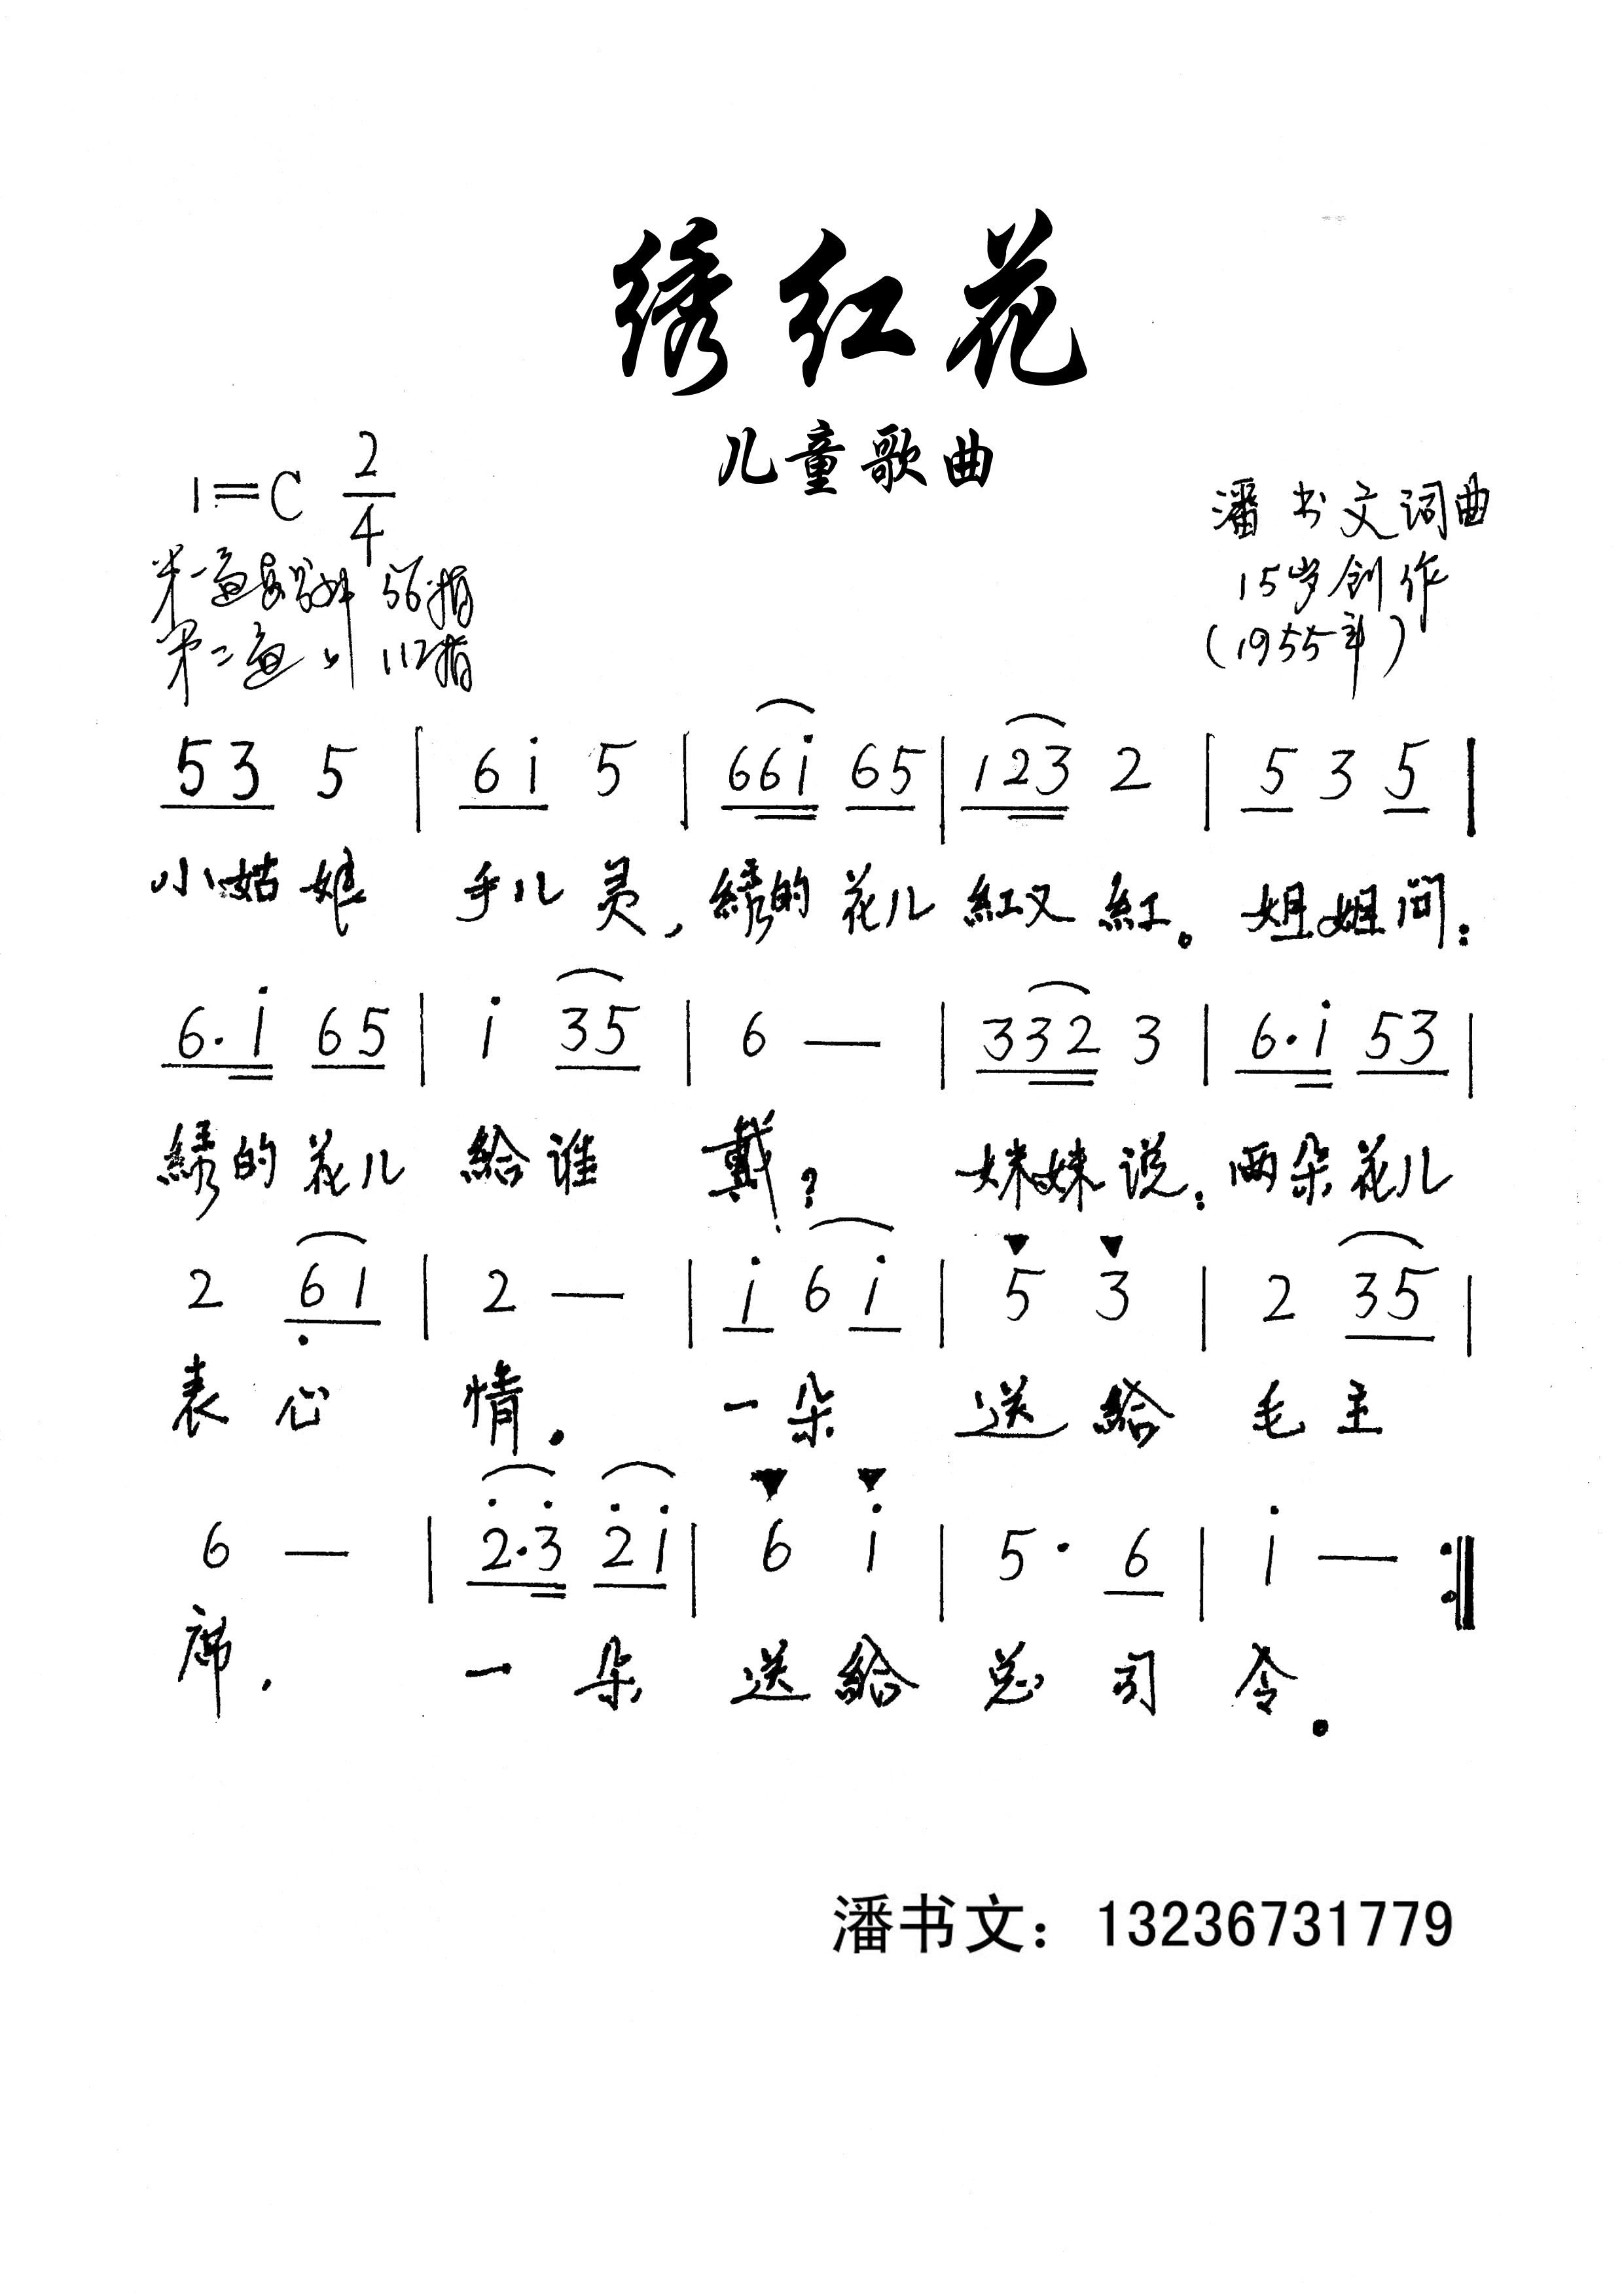 绣红花
儿童歌曲
1=C 2/4
潘书文词曲
15岁创作
(1955年)
第一遍 56拍
第二遍 〃 112拍
53 5 | 6i̇ 5 | 66i̇ 65 | 123 2 | 5 3 5 |
小姑娘 手儿灵,綉的花儿紅又紅。姐姐问:
6·i̇ 65 | i̇ 35 | 6 — | 332 3 | 6·i̇ 53 |
綉的花儿 給谁 戴? 妹妹说:两朵花儿
2 6̣1 | 2 — | i̇ 6 i̇ | 5 3 | 2 35 |
表心 情. 一朵 送給 毛主
6 — | 2̇·3̇ 2̇i̇ | 6 i̇ | 5· 6 | i̇ — :‖
席. 一朵 送給 总司 令。
潘书文：13236731779